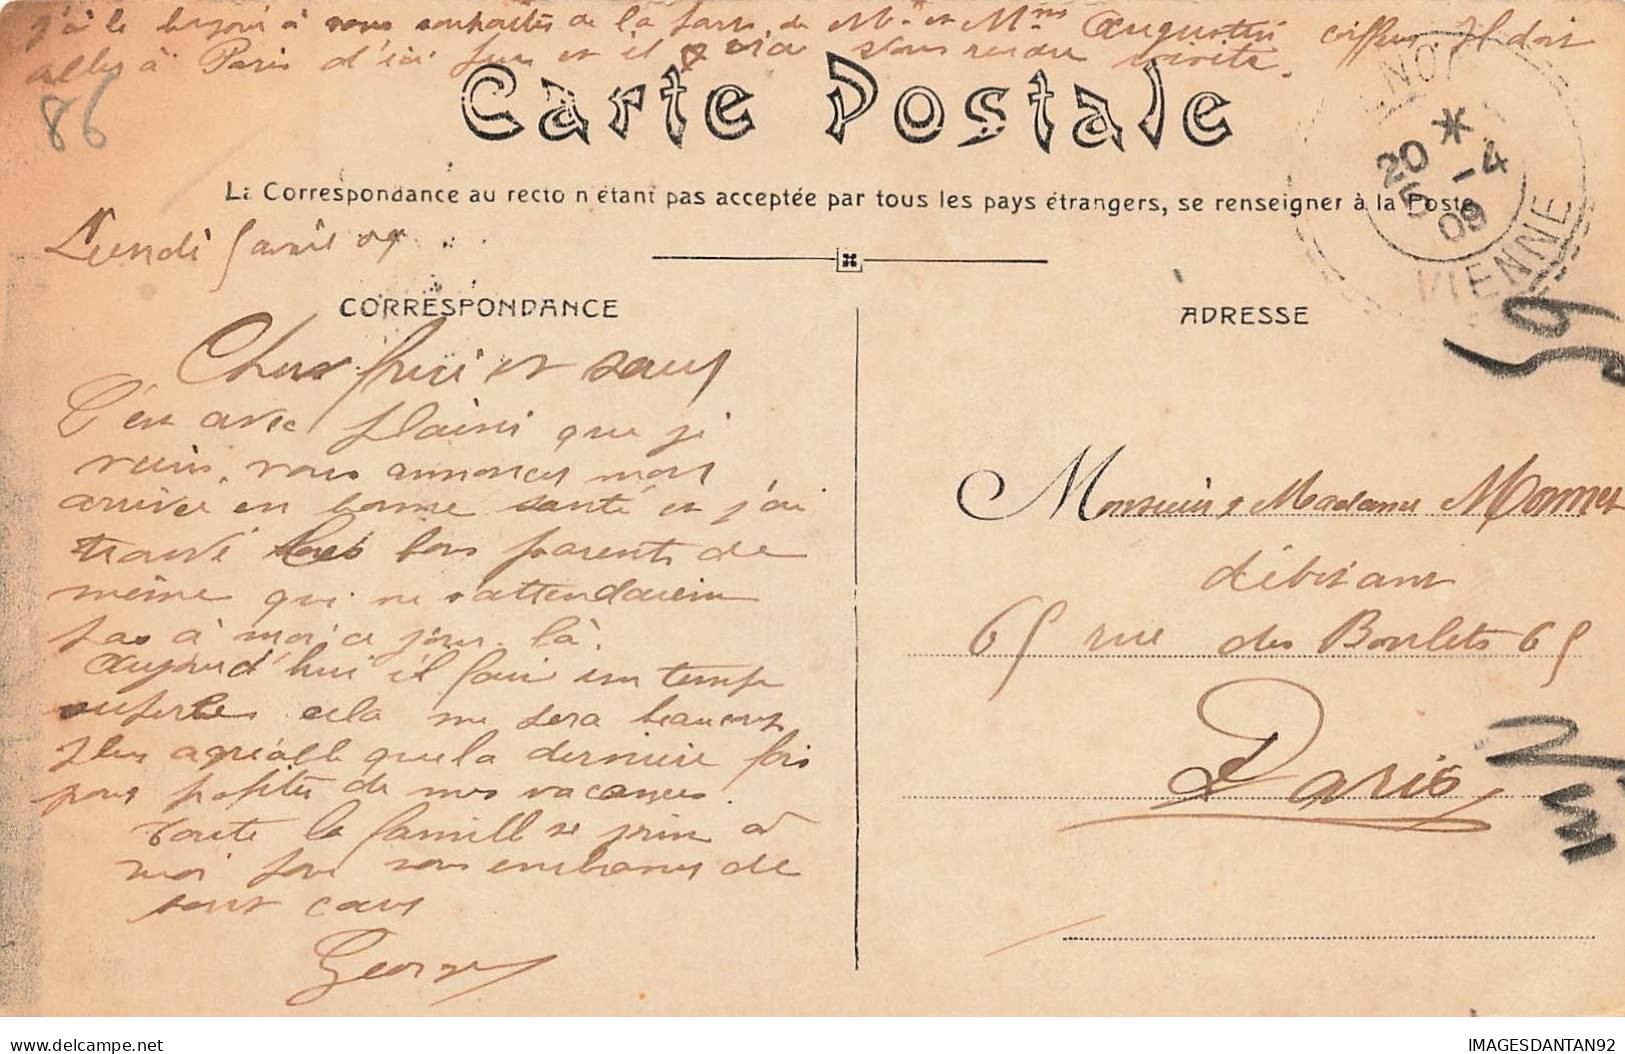 j'ai le bonjour à vous souhaiter de la part de Mr et Mme Augustin coiffeur Il doit
aller à Paris d'ici peu et il ira vous rendre visite.
86
Carte Postale
La Correspondance au recto n'étant pas acceptée par tous les pays étrangers, se renseigner à la Poste
20 * 5 -4 09
VIENNE
Lundi 5 avril 09
CORRESPONDANCE
ADRESSE
Cher frère et sœur
C'est avec plaisir que je
viens vous annoncer mon
arrivée en bonne santé et j'ai
trouvé les bons parents de
même qui ne s'attendaient
pas à moi ce jour là.
Aujourd'hui il fait un temps
superbe cela me sera beaucoup
plus agréable que la dernière fois
pour profiter de mes vacances.
Toute la famille se joint à
moi pour vous embrasser de
tout cœur
Georges
Monsieur & Madame Monnet
débitant
65 rue des Boulets 65
Paris
IMAGESDANTAN92
delcampe.net